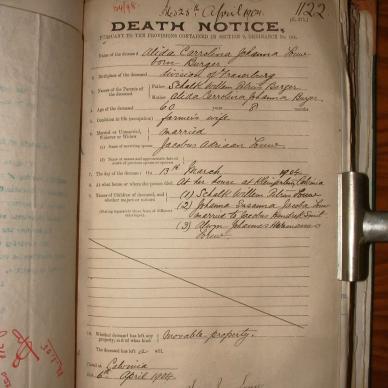 1122
25th April 1904.
DEATH NOTICE,
PURSUANT TO THE PROVISIONS CONTAINED IN SECTION 9, ORDINANCE No. 104.
1. Name of the deceased Alida Carrolina Johanna Louw
born Burger
2. Birthplace of the deceased division of Fraserburg
3. Names of the Parents of the deceased Father Schalk Willem Petrus Burger
Mother Alida Carrolina Johanna Burger
4. Age of the deceased 60 years 8 months
5. Condition in life (occupation) farmer's wife
6. Married or Unmarried, Widower or Widow married
Name of surviving spouse Jacobus Adriaan Louw
7. The day of the decease: On 13th March 1904
8. At what house or where the person died At her house at Calvinia
9. Names of Children of deceased, and whether majors or minors
(1) Schalk Willem Petrus Louw
(2) Johanna Susanna Jacoba Louw
married to Jacobus Hendrik Smit
(3) Alwyn Johannes Louw
10. Whether deceased has left any property, and of what kind movable property.
The deceased has left a will
Dated at Calvinia
6th April 1904